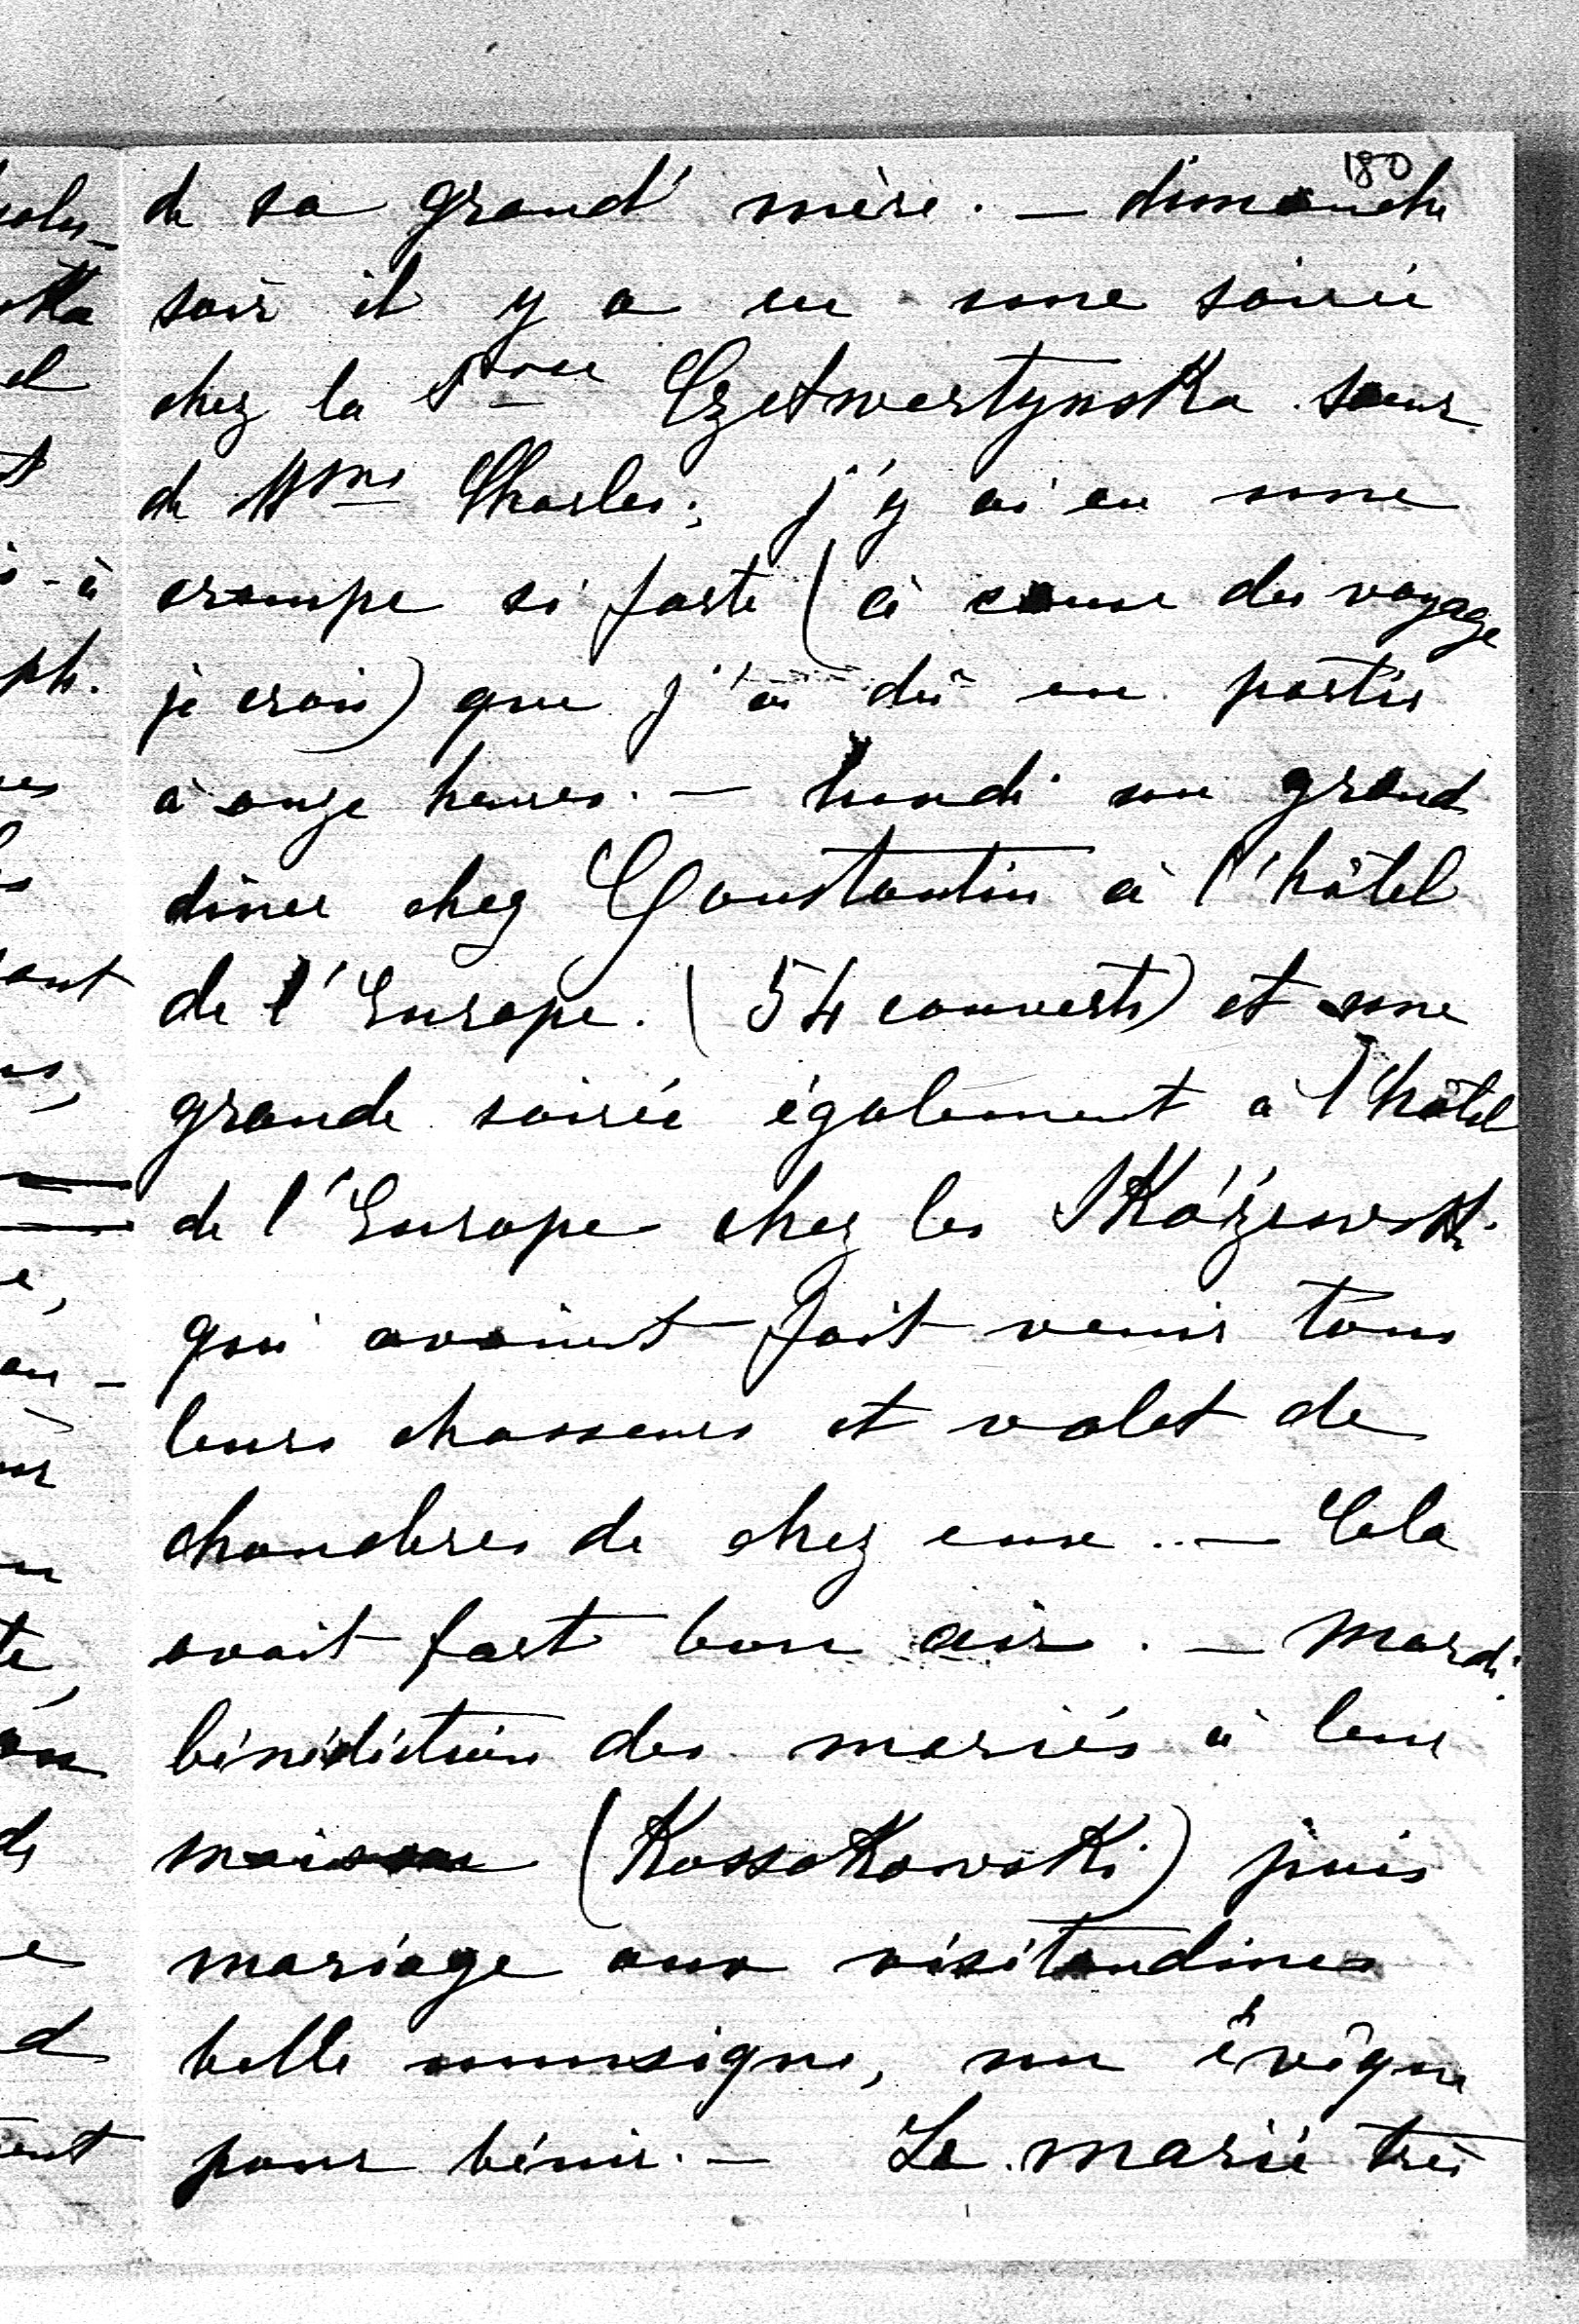 180
de sa grand' mère. — dimanche
soir il y a eu une soirée
chez la Pcesse Czetwertynska soeur
de Mme Charles; j'y ai eu une
crampe si forte (à cause du voyage
je crois) que j'ai dû en partir
à onze heures. — lundi un grand
dîner chez Constantin à l'hôtel
de l'Europe. (54 couverts) et une
grande soirée également à l'hôtel
de l'Europe chez les
qui avaient fait venir tous
leurs chasseurs et valet de
chambres de chez eux.. — Cela
avait fort bon air. — Mardi
bénédiction des mariés à leur
maison (Kossakowski) puis
mariage aux visitandines
belle musique, un évêque
pour bénir. — Le marié très